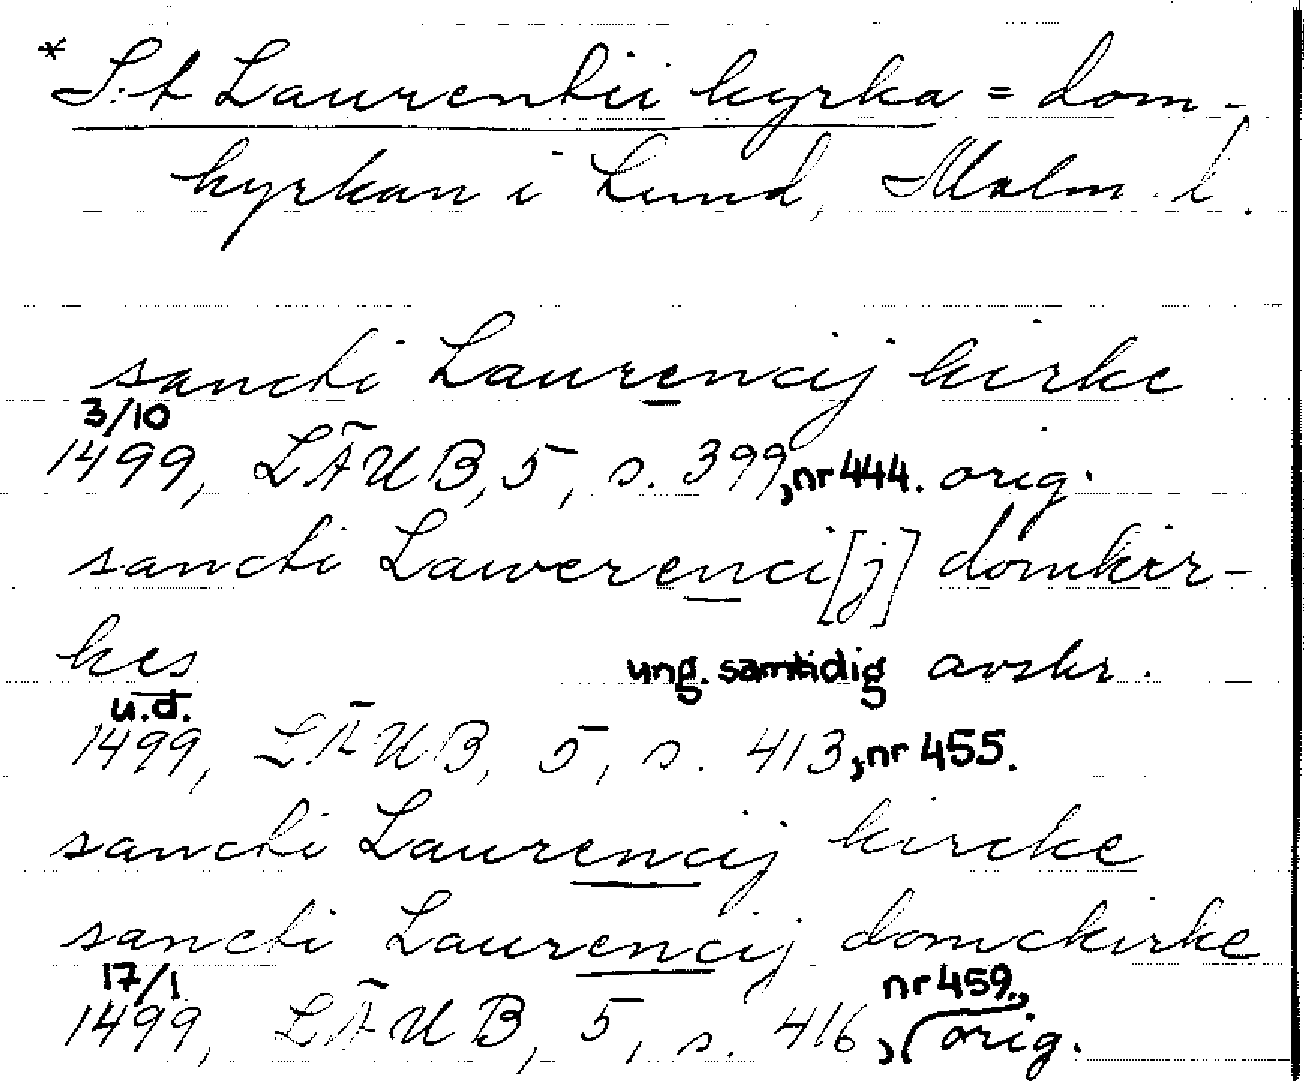 * S:t Laurentii kyrka = dom-
kyrkan i Lund, Malm. l.
sancti Laurencij kirke
3/10
1499, LÄUB, 5, s. 399, nr 444. orig.
sancti Lawerenci[j] domkir-
kes
ung. samtidig avskr.
u.d.
1499, LÄUB, 5, s. 413, nr 455.
sancti Laurencij kircke
sancti Laurencij domckirke
17/1
1499, LÄUB, 5, s. 416, nr 459., orig.